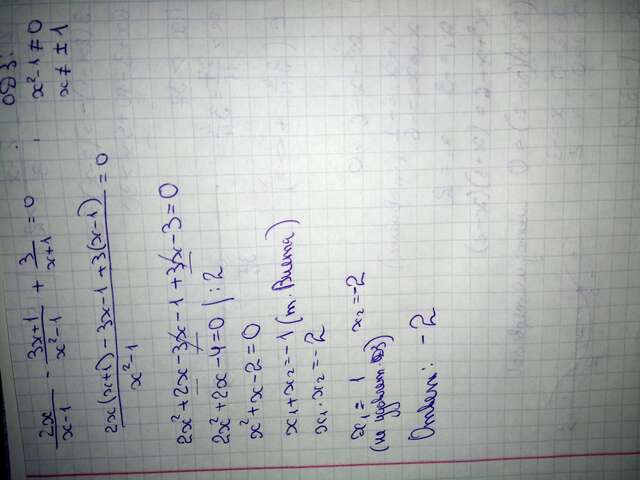 2x/(x-1) - (3x+1)/(x²-1) + 3/(x+1) = 0 , ОДЗ:
x²-1≠0
x≠±1
(2x(x+1) - 3x-1 + 3(x-1))/(x²-1) = 0
2x²+2x-3x-1+3x-3=0
2x²+2x-4=0 | :2
x²+x-2=0
x₁+x₂=-1 (т. Виета)
x₁·x₂=-2
x₁=1 x₂=-2
(не удовлет. ОДЗ)
Ответ: -2